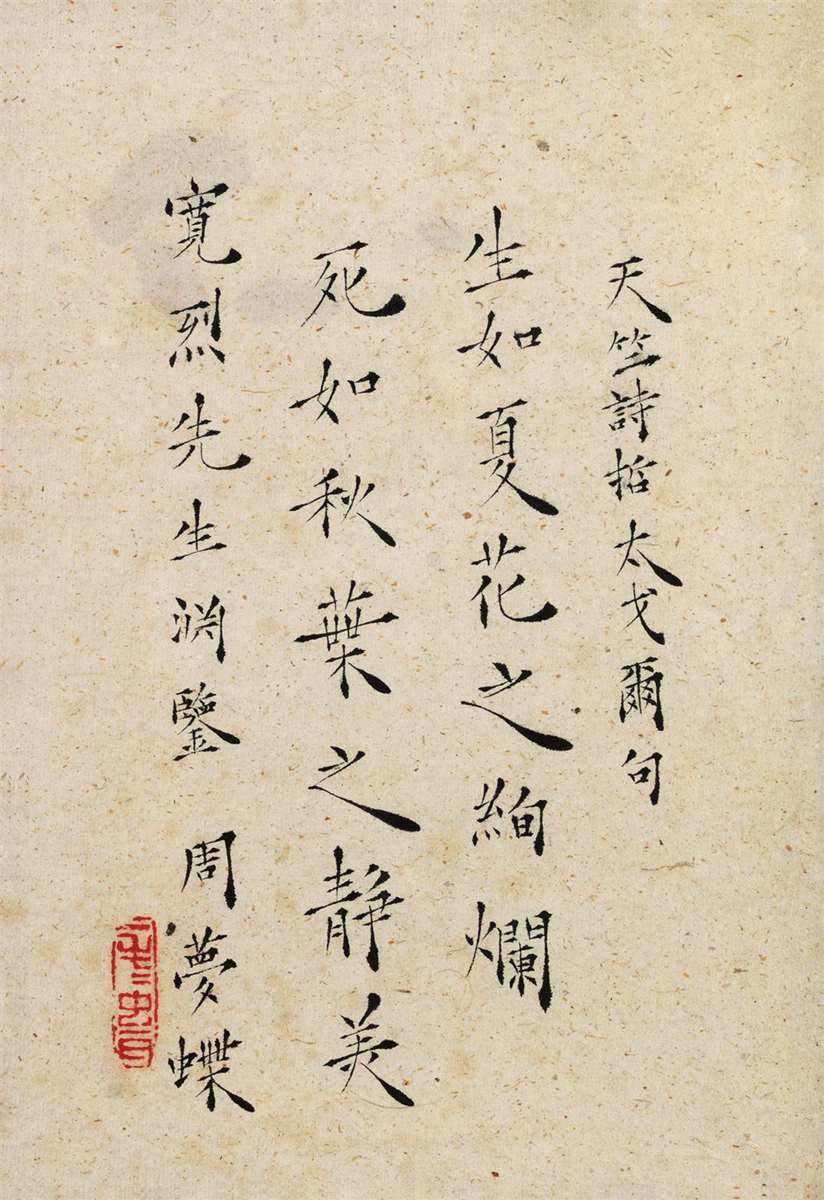 天竺詩哲太戈爾句
生如夏花之絢爛
死如秋葉之靜美
寬烈先生渊鑒 周夢蝶